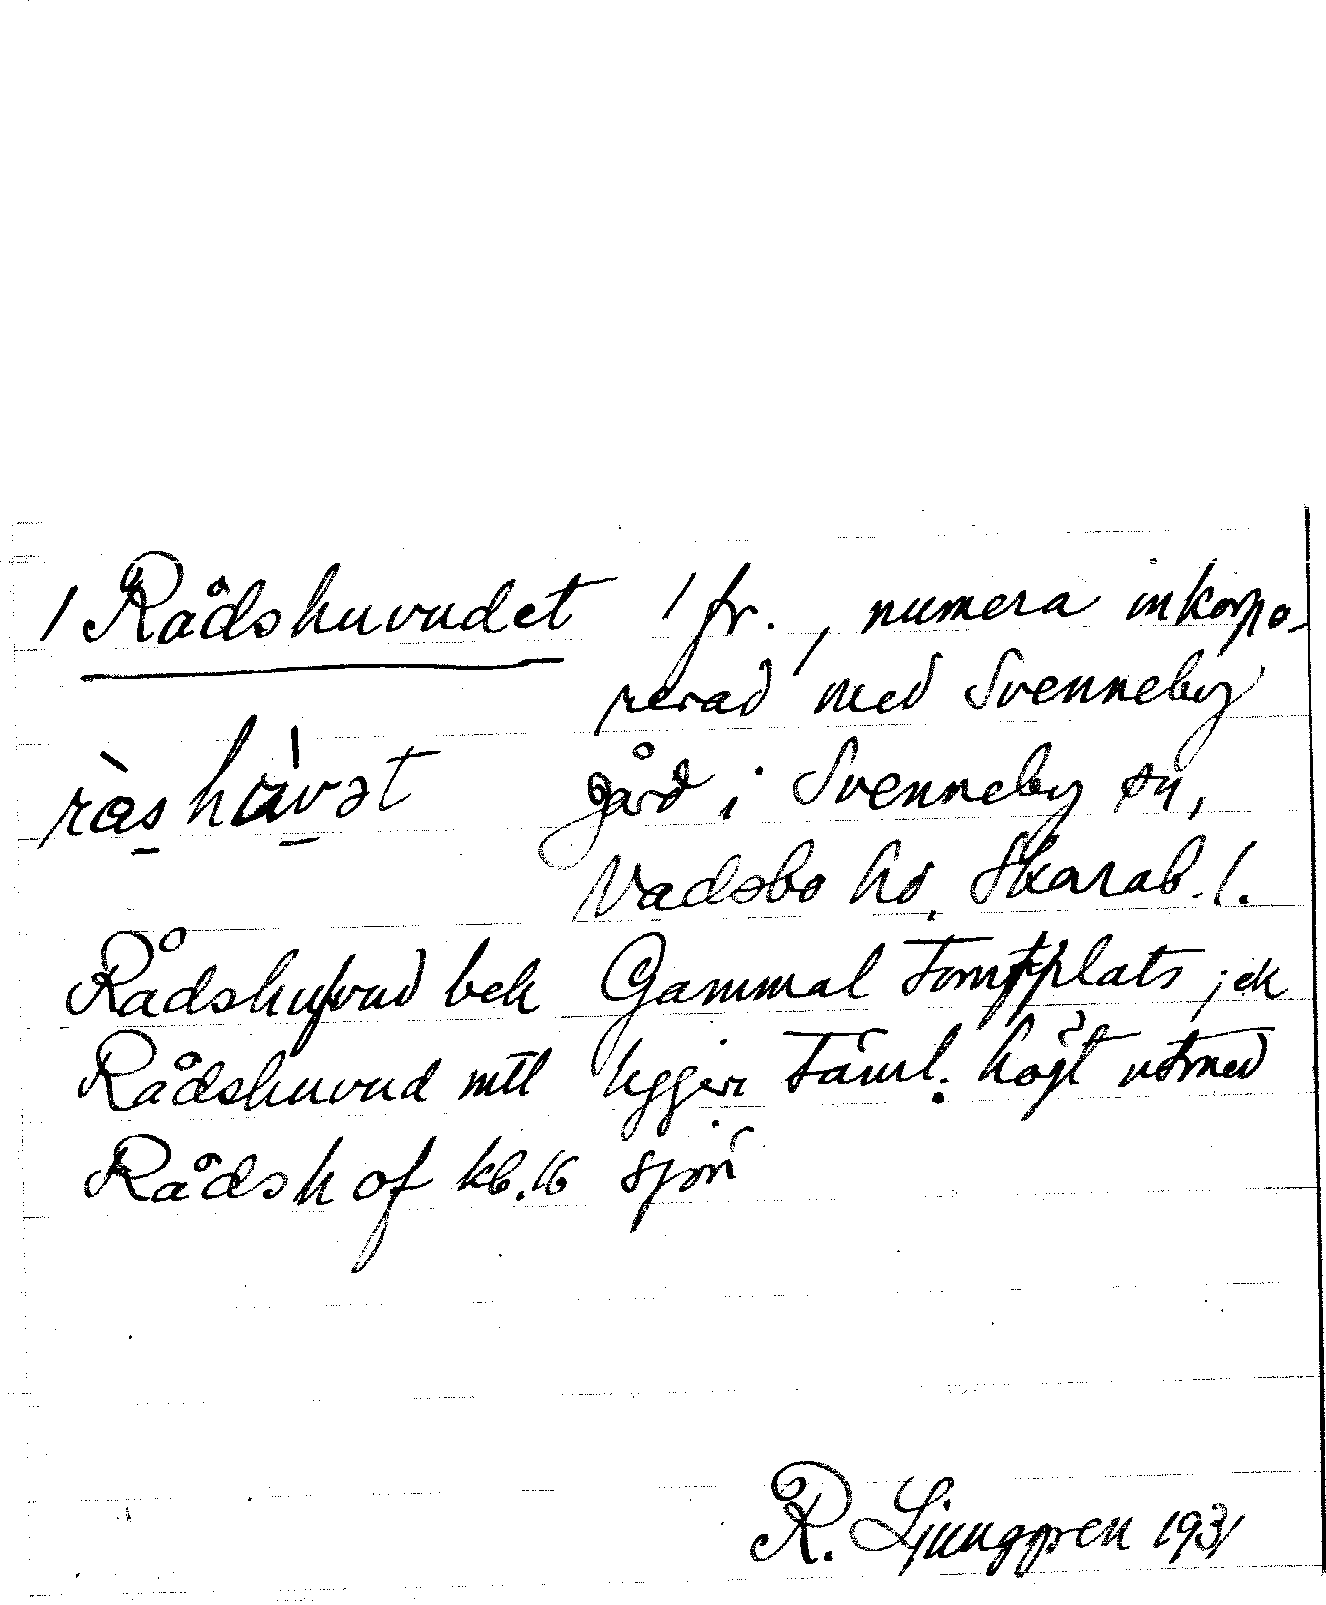 / Rådshuvudet / fr., numera inkorpo-
rerad med Svenneby
ràshàvət gård i Svenneby sn,
Vadsbo hd. Skarab. l.
Rådshufvud bek Gammal tomtplats; ek
Rådshuvud mtl ligger täml. högt utmed
Rådshof kb. 16 sjön
R. Ljunggren 1931